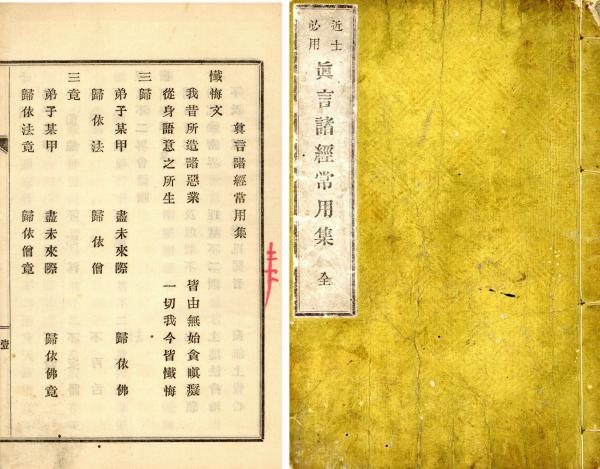 近士
必用
眞言諸經常用集 全
眞言諸經常用集
懺悔文
我昔所造諸惡業 皆由無始貪瞋癡
從身語意之所生 一切我今皆懺悔
三歸
弟子某甲 盡未來際 歸依佛
歸依法 歸依僧
三竟
弟子某甲 盡未來際 歸依佛竟
歸依法竟 歸依僧竟
壹